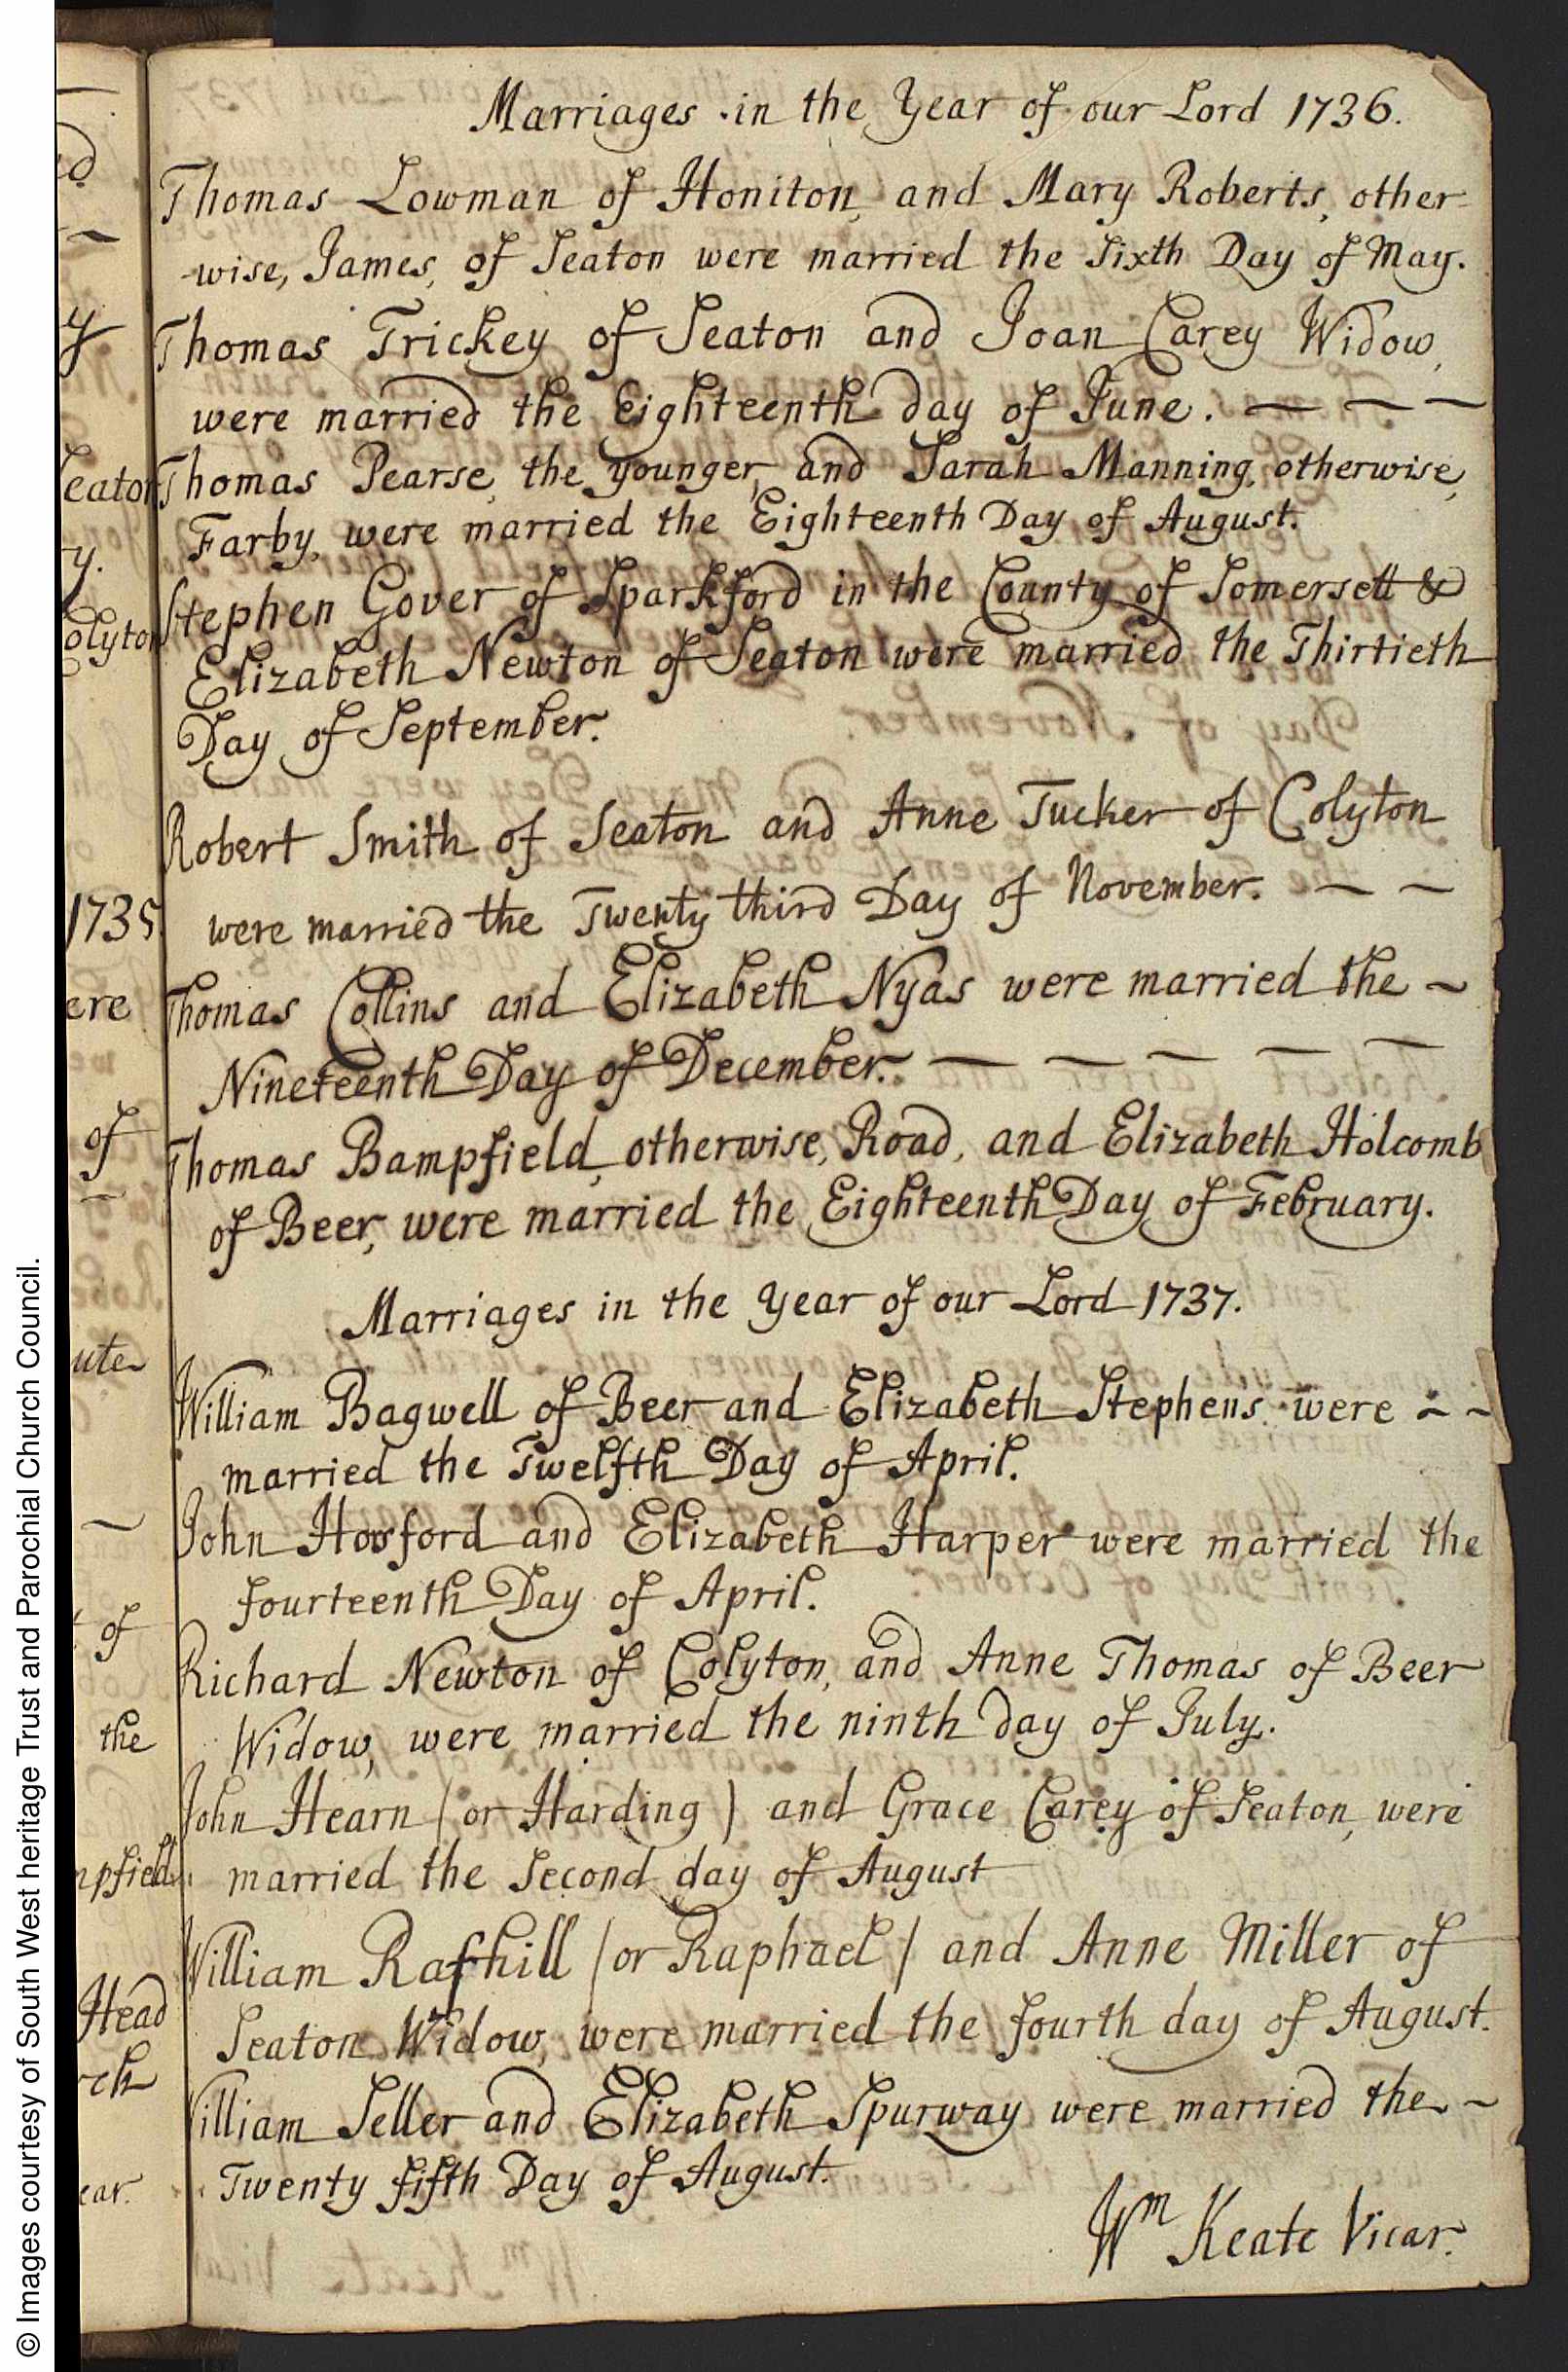 Marriages in the Year of our Lord 1736.
Thomas Lowman of Honiton, and Mary Roberts, other-
-wise, James, of Seaton were married the Sixth Day of May.
Thomas Trickey of Seaton and Joan Carey Widow,
were married the Eighteenth day of June. — — —
Thomas Pearse, the younger, and Sarah Manning, otherwise,
Farby, were married the Eighteenth Day of August.
Stephen Gover of Sparkford in the County of Somersett &
Elizabeth Newton of Seaton were married the Thirtieth
Day of September.
Robert Smith of Seaton and Anne Tucker of Colyton
were married the Twenty third Day of November. — —
Thomas Collins and Elizabeth Nyas were married the ~
Nineteenth Day of December. — — — — —
Thomas Bampfield, otherwise, Road, and Elizabeth Holcomb
of Beer, were married the Eighteenth Day of February.
Marriages in the Year of our Lord 1737.
William Bagwell of Beer and Elizabeth Stephens were ~ ~
married the Twelfth Day of April.
John Hosford and Elizabeth Harper were married the
fourteenth Day of April.
Richard Newton of Colyton, and Anne Thomas of Beer
Widow, were married the ninth day of July.
John Hearn (or Harding) and Grace Carey of Seaton, were
married the Second day of August
William Rafhill (or Raphael) and Anne Miller of
Seaton Widow, were married the fourth day of August.
William Seller and Elizabeth Spurway were married the ~
Twenty fifth Day of August.
Wm Keate Vicar.
eaton
y.
olyton
1735.
ere
of
ute
of
the
mpfield
Head
rch
ear.
© Images courtesy of South West heritage Trust and Parochial Church Council.